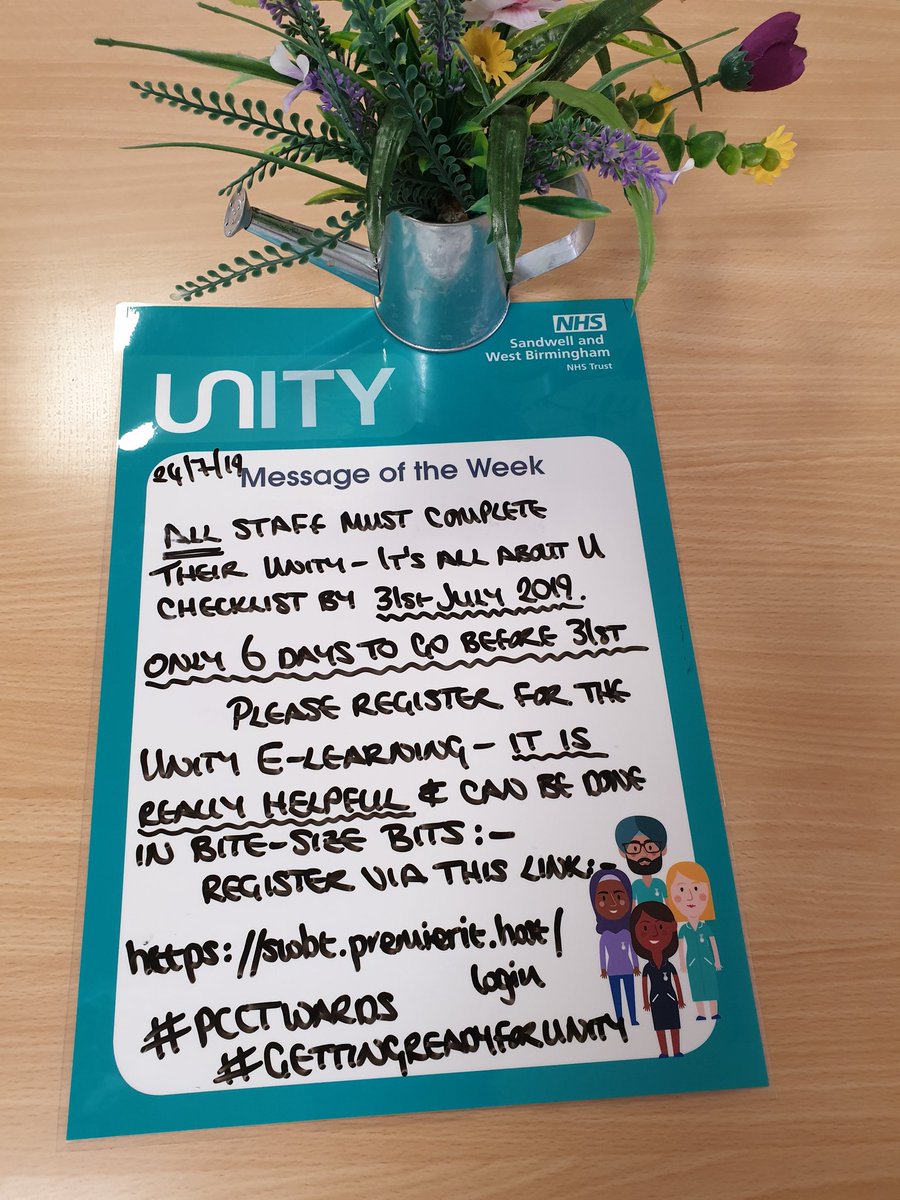 NHS
Sandwell and
West Birmingham
NHS Trust
UNITY
24/7/19
Message of the Week
ALL STAFF MUST COMPLETE
THEIR UNITY - IT'S ALL ABOUT U
CHECKLIST BY 31ST JULY 2019.
ONLY 6 DAYS TO GO BEFORE 31ST
PLEASE REGISTER FOR THE
UNITY E-LEARNING - IT IS
REALLY HELPFUL & CAN BE DONE
IN BITE-SIZE BITS:-
REGISTER VIA THIS LINK:-
https://swbt.premierit.host/
login
#PCCTWARDS
#GETTINGREADYFORUNITY